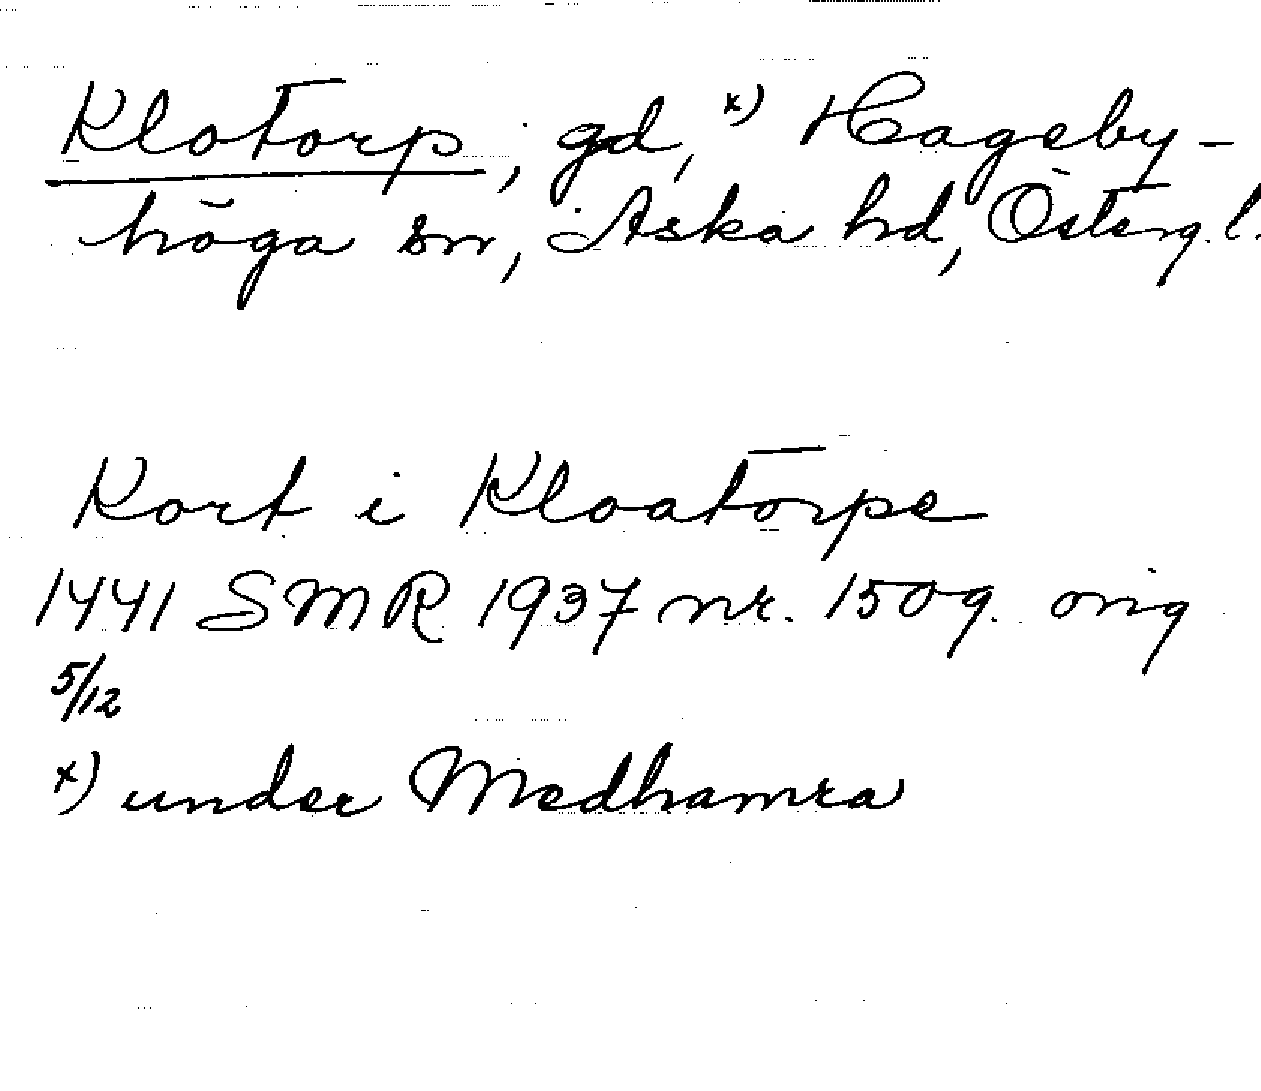 Klotorp, gd, x) Hageby-
höga sn, Aska hd, Österg.l.
Kort i Kloatorpe
1441 SMR 1937 nr. 1509. orig
5/12
x) under Medhamra